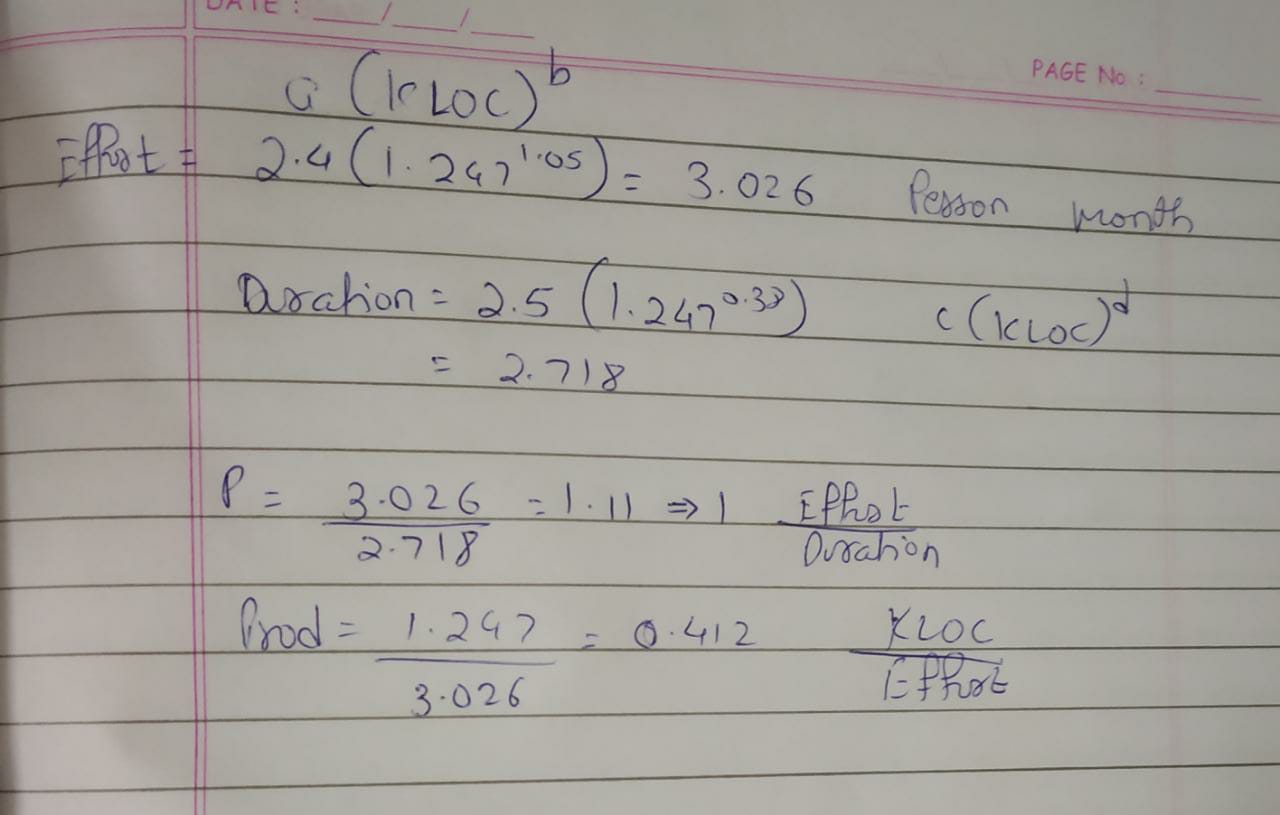 DATE : ___/___/___
PAGE No : ______
a (KLOC)^b
Effort = 2.4 (1.247^1.05) = 3.026 Person month
Duration = 2.5 (1.247^0.38) c (KLOC)^d
= 2.718
P = 3.026/2.718 = 1.11 ⇒ 1 Effort/Duration
Prod = 1.247/3.026 = 0.412 KLOC/Effort